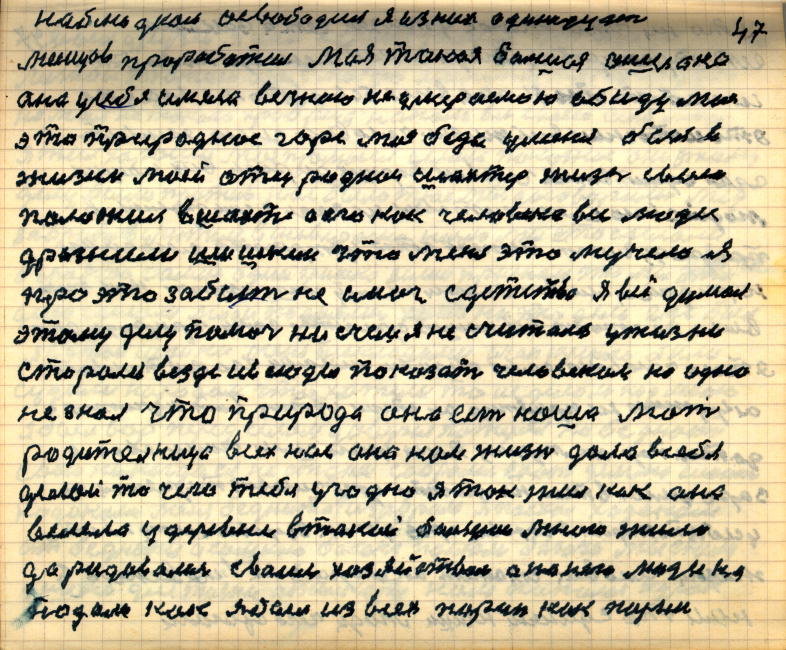 47
наблюдком освободил я из них одинадцат
месицов проработал моя такая болшая ошыпка
ана у себя имела вечною неумераемою обиду моя
это природное горе моя беда у меня был в
жизни мой отец родной шахтер жизн свою
положил в шахте а его как человека все люди
дразнили шишкин что меня это мучело я
про это забыт не смог с детство я всё думал
этому делу помоч ни с чем я не считалс у жизни
старалс везде и всюды показат человеком но одно
не знал что природа она ест наша мат
родителница всех нас она нам жизн дала в себя
делай то чего тебе угодно я так жил как она
велела у деревне в такой болшой много жило
да радовалис сваим хозяйством а на нго люди на
падали как я был из всех парен как парни